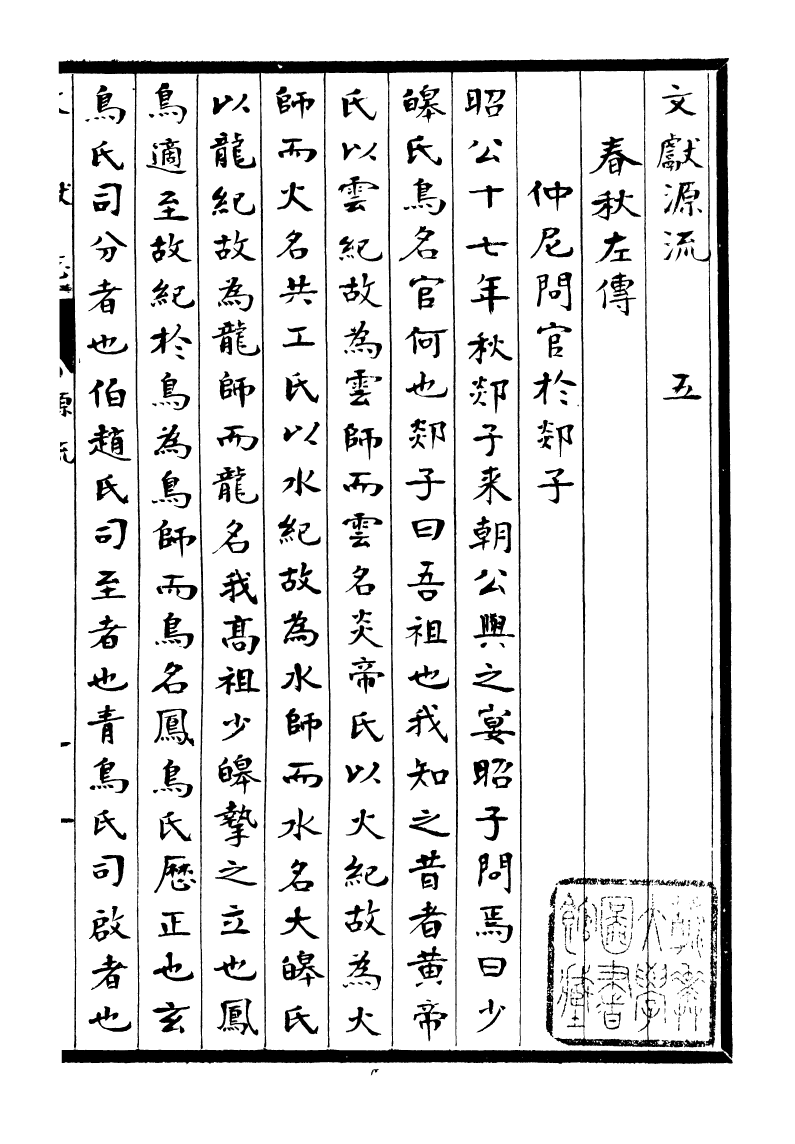 文獻源流　　五
春秋左傳
仲尼問官於郯子
昭公十七年秋郯子来朝公與之宴昭子問焉曰少
皞氏鳥名官何也郯子曰吾祖也我知之昔者黄帝
氏以雲紀故為雲師而雲名炎帝氏以火紀故為火
師而火名共工氏以水紀故為水師而水名大皞氏
以龍紀故為龍師而龍名我髙祖少皞摯之立也鳳
鳥適至故紀於鳥為鳥師而鳥名鳳鳥氏厯正也玄
鳥氏司分者也伯趙氏司至者也青鳥氏司啟者也
大學
圖書
源流